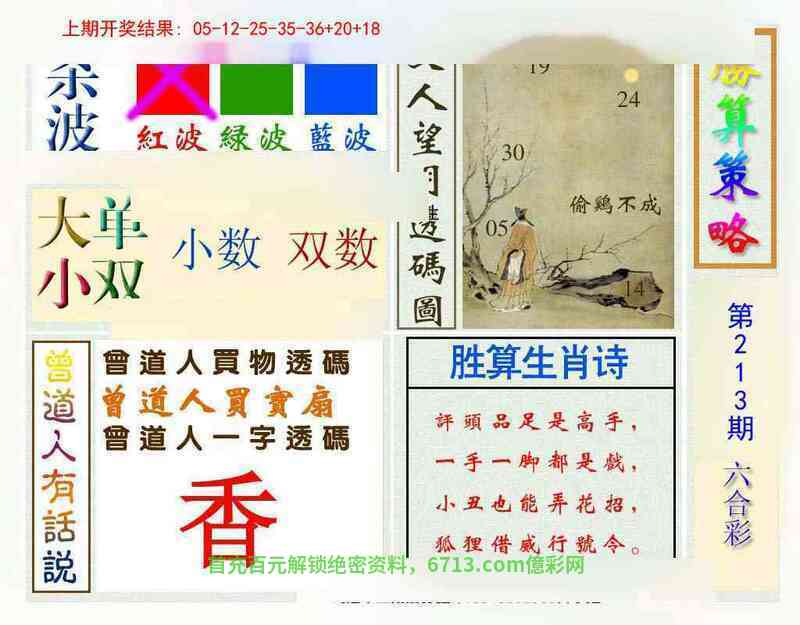 上期开奖结果：05-12-25-35-36+20+18
杀波
紅波 綠波 藍波
大单
小双
小数 双数
人望月透碼圖
19
24
30
偷鷄不成
05
14
勝算策略
第213期
六合彩
曾道人有話説
曾道人買物透碼
曾道人買寶扇
曾道人一字透碼
香
胜算生肖诗
評頭品足是高手，
一手一脚都是戲，
小丑也能弄花招，
狐狸借威行號令。
首充百元解锁绝密资料，6713.com億彩网